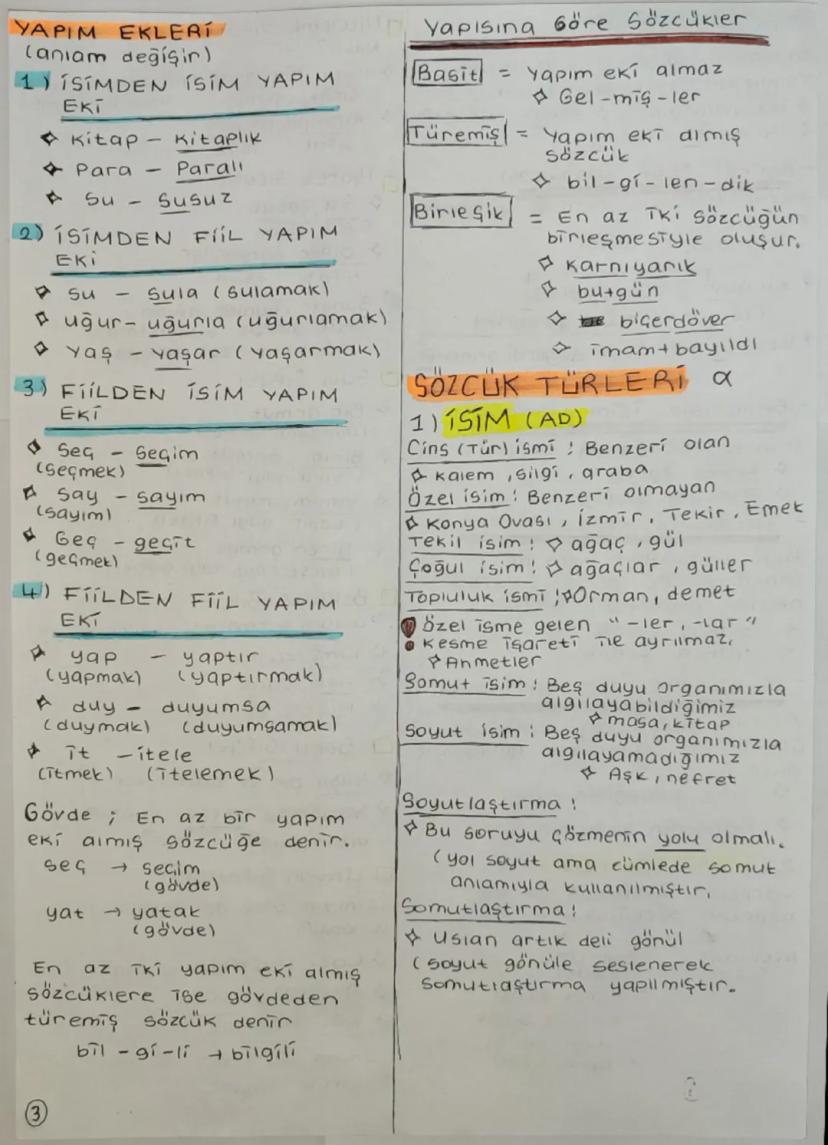 YAPIM EKLERİ
(anlam değişir)
1) İSİMDEN İSİM YAPIM
EKİ
Kitap – Kitaplık
Para – Paralı
Su – Susuz
2) İSİMDEN FİİL YAPIM
EKİ
Su – Sula (sulamak)
uğur – uğurla (uğurlamak)
yaş – yaşar (yaşarmak)
3) FİİLDEN İSİM YAPIM
EKİ
Seç – Seçim
(seçmek)
Say – sayım
(sayım)
Geç – geçit
(geçmek)
4) FİİLDEN FİİL YAPIM
EKİ
yap – yaptır
(yapmak) (yaptırmak)
duy – duyumsa
(duymak) (duyumsamak)
it – itele
(itmek) (itelemek)
Gövde ; En az bir yapım
eki almış sözcüğe denir.
seç → seçim
(gövde)
yat → yatak
(gövde)
En az iki yapım eki almış
sözcüklere ise gövdeden
türemiş sözcük denir
bil – gi – li → bilgili
3
Yapısına Göre Sözcükler
Basit = Yapım eki almaz
Gel – miş – ler
Türemiş = Yapım eki almış
sözcük
bil – gi – len – dik
Birleşik = En az iki sözcüğün
birleşmesiyle oluşur.
Karnıyarık
bu+gün
biçerdöver
imam+bayıldı
SÖZCÜK TÜRLERİ α
1) İSİM (AD)
Cins (Tür) ismi : Benzeri olan
Kalem, silgi, araba
Özel isim : Benzeri olmayan
Konya Ovası, İzmir, Tekir, Emek
Tekil isim : ağaç, gül
Çoğul isim : ağaçlar, güller
Topluluk ismi : Orman, demet
! Özel isme gelen "-ler, -lar"
kesme işareti ile ayrılmaz.
Ahmetler
Somut isim : Beş duyu organımızla
algılayabildiğimiz
masa, kitap
Soyut isim : Beş duyu organımızla
algılayamadığımız
Aşk, nefret
Soyutlaştırma :
Bu soruyu çözmenin yolu olmalı.
(yol soyut ama cümlede somut
anlamıyla kullanılmıştır.
Somutlaştırma :
Uslan artık deli gönül
(soyut gönüle seslenerek
somutlaştırma yapılmıştır.